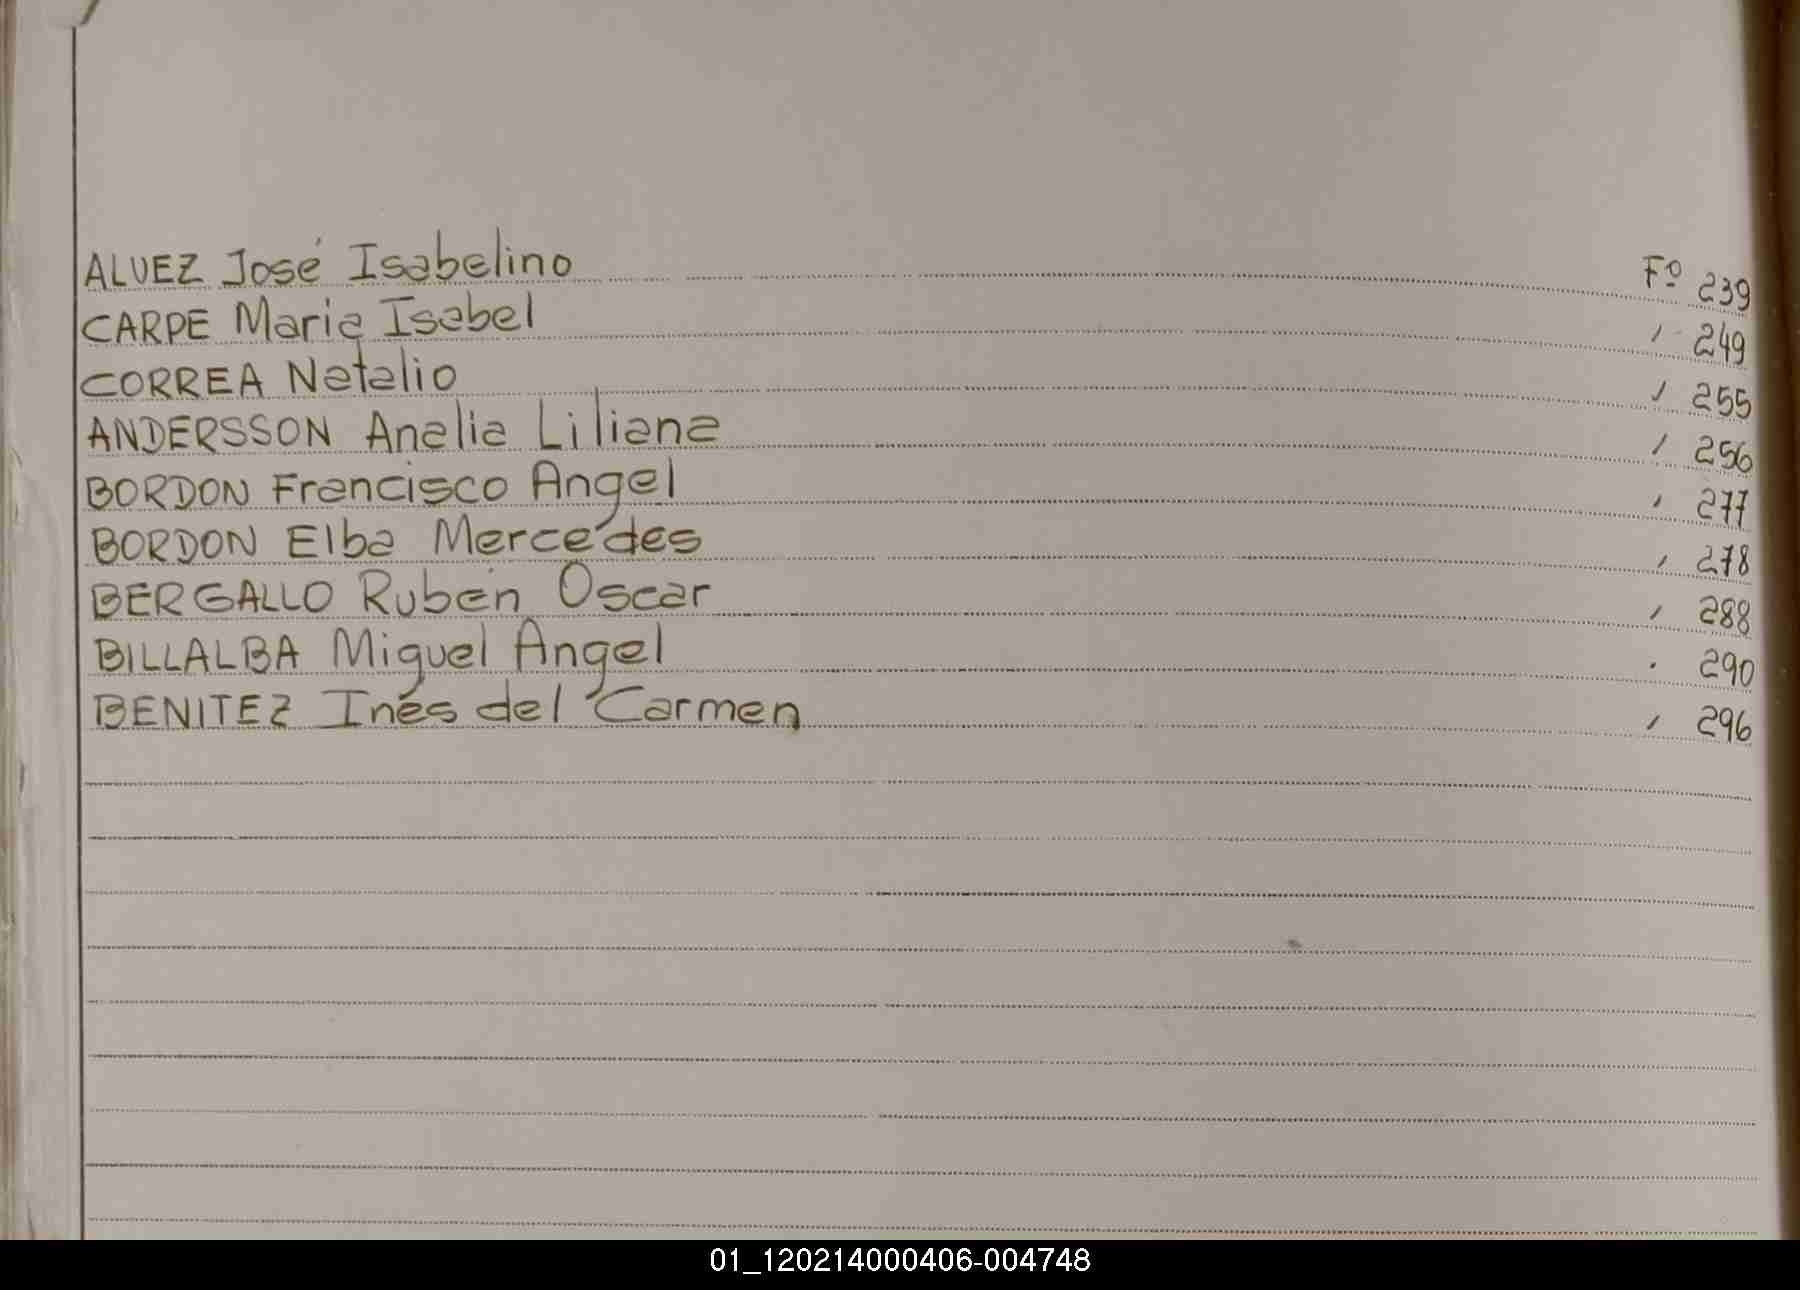 ALVEZ José Isabelino Fº 239
CARPE Maria Isabel , 249
CORREA Natalio , 255
ANDERSSON Analia Liliana , 256
BORDON Francisco Angel , 277
BORDON Elba Mercedes , 278
BERGALLO Rubén Oscar , 288
BILLALBA Miguel Angel . 290
BENITEZ Inés del Carmen , 296
01_120214000406-004748